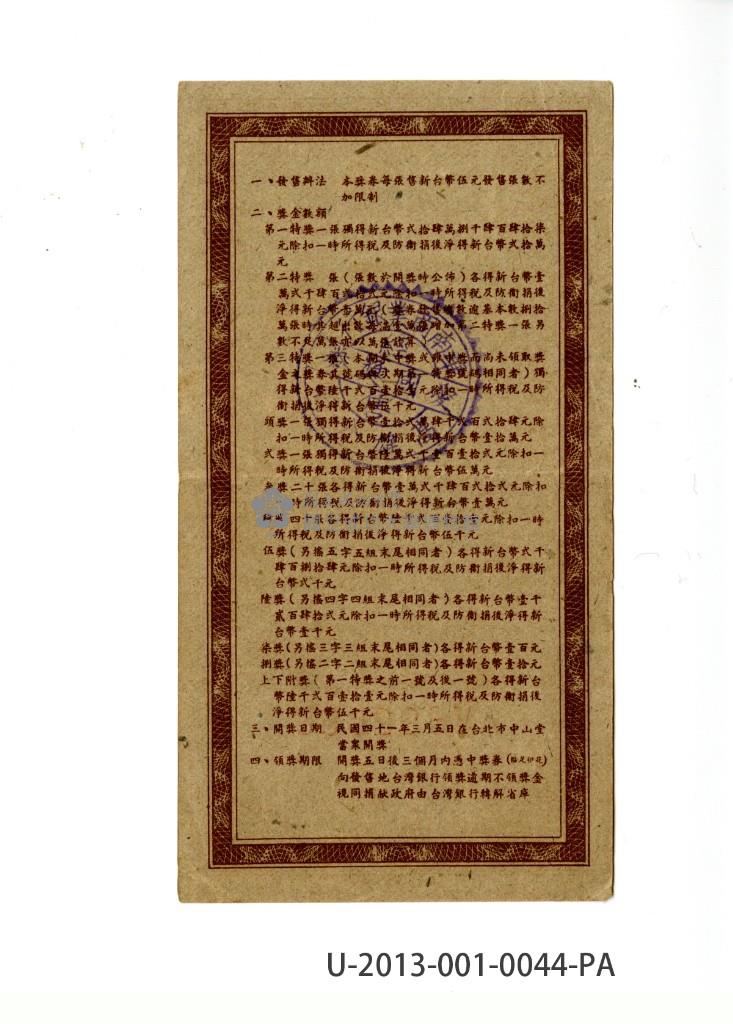 一、發售辦法　本獎券每張售新台幣伍元發售張數不
加限制
二、獎金數額
第一特獎一張獨得新台幣弍拾肆萬捌千肆百肆拾柒
元除扣一時所得稅及防衛捐後淨得新台幣弍拾萬
元
第二特獎　張(張數於開獎時公佈)各得新台幣壹
萬弍千肆百弍拾弍元除扣一時所得稅及防衛捐後
淨得新台幣壹萬元(獎券發售張數逾基本數捌拾
萬張時其超出數每滿壹萬張增加第二特獎一張另
數不及萬張亦以萬張計算)
第三特獎一張(本開未中獎或雖中獎而尚未領取獎
金者獎券其號碼與次期第一特獎號碼相同者)獨
得新台幣陸千弍百壹拾壹元除扣一時所得稅及防
衛捐後淨得新台幣伍千元
頭獎一張獨得新台幣拾弍萬肆千弍百弍拾肆元除
扣一時所得稅及防衛捐後淨得新台幣壹拾萬元
弍獎一張獨得新台幣陸萬弍千壹百壹拾弍元除扣一
時所得稅及防衛捐後淨得新台幣伍萬元
參獎二十張各得新台幣壹萬弍千肆百弍拾弍元除扣
一時所得稅及防衛捐後淨得新台幣壹萬元
肆獎四十張各得新台幣陸千弍百壹拾壹元除扣一時
所得稅及防衛捐後淨得新台幣伍千元
伍獎(另搖五字五組末尾相同者)各得新台幣弍千
肆百捌拾肆元除扣一時所得稅及防衛捐後淨得新
台幣弍千元
陸獎(另搖四字四組末尾相同者)各得新台幣壹千
貳百肆拾弍元除扣一時所得稅及防衛捐後淨得新
台幣壹千元
柒獎(另搖三字三組末尾相同者)各得新台幣壹百元
捌獎(另搖二字二組末尾相同者)各得新台幣壹拾元
上下附獎(第一特獎之前一號及後一號)各得新台
幣陸千弍百壹拾壹元除扣一時所得稅及防衛捐後
淨得新台幣伍千元
三、開獎日期　民國四十一年三月五日在台北市中山堂
當衆開獎
四、領獎期限　開獎五日後三個月內憑中獎券(貼足印花)
向發售地台灣銀行領獎逾期不領獎金
視同捐献政府由台灣銀行轉解省庫
U-2013-001-0044-PA